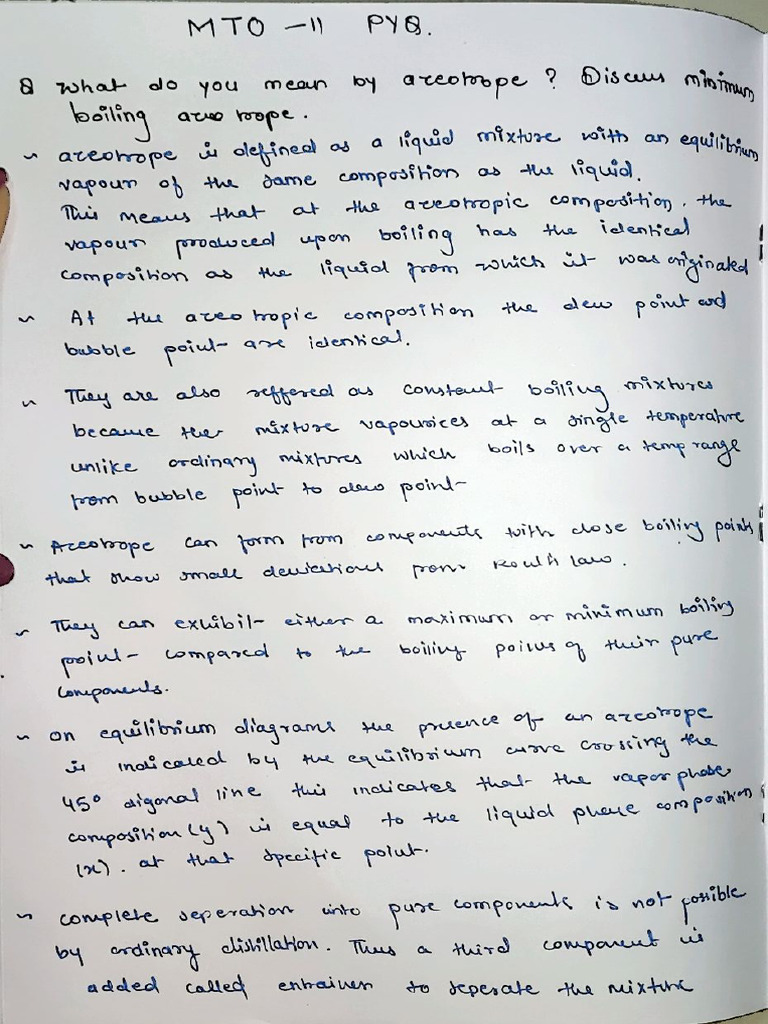 MTO -11 PYQ.
Q what do you mean by azeotrope ? Discuss minimum
boiling azeo trope.
~ azeotrope is defined as a liquid mixture with an equilibrium
vapour of the same composition as the liquid.
This means that at the azeotropic composition. the
vapour produced upon boiling has the identical
composition as the liquid from which it was originated
~ At the azeotropic composition the dew point and
bubble point are identical.
~ They are also reffered as constant boiling mixtures
because the mixture vapourices at a single temperature
unlike ordinary mixtures which boils over a temp range
from bubble point to dew point
~ Azeotrope can form from components with close boiling points
that show small deviations from Roult's law.
~ They can exhibit either a maximum or minimum boiling
point compared to the boiling points of their pure
components.
~ on equilibrium diagrams the presence of an azeotrope
is indicated by the equilibrium curve crossing the
45° digonal line this indicates that the vapor phase
composition (y) is equal to the liquid phase composition
(x). at that specific point.
~ complete seperation into pure components is not possible
by ordinary distillation. Thus a third component is
added called entrainer to seperate the mixture